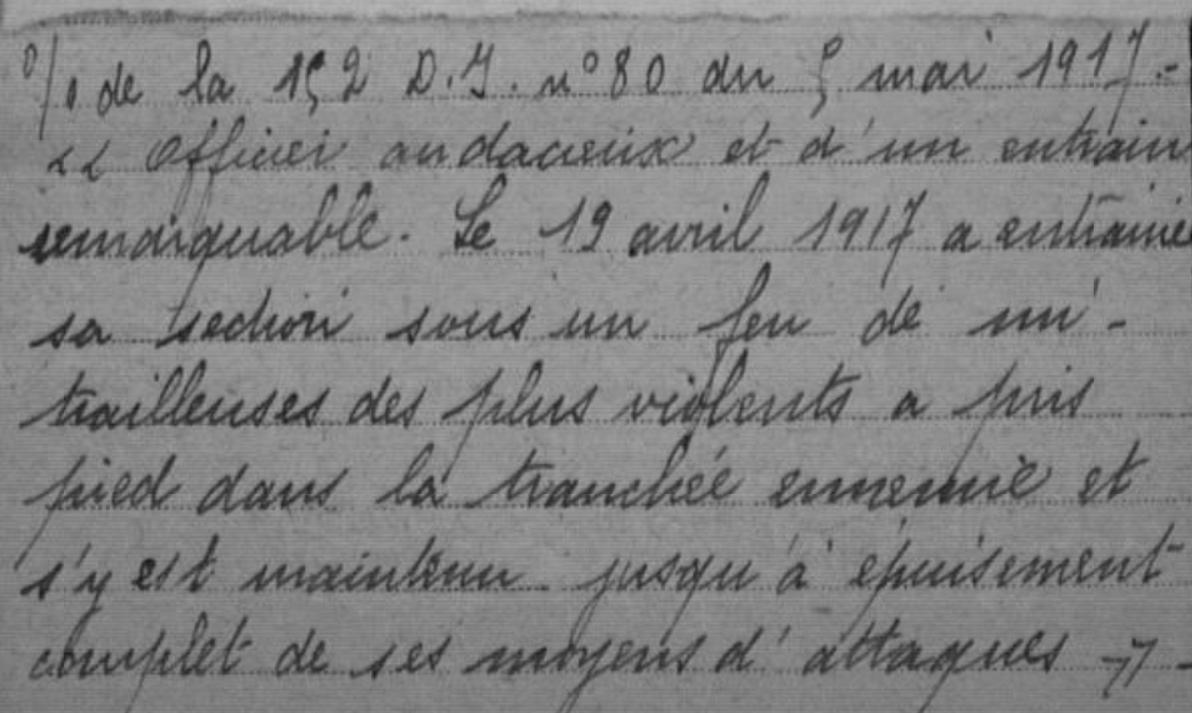 O/. de la 152 D.I. n° 80 du 5 mai 1917.-
<< Officier audacieux et d'un entrain
remarquable. Le 19 avril 1917 a entrainé
sa section sous un feu de mi-
trailleuses des plus violents a pris
pied dans la tranchée ennemie et
s'y est maintenu jusqu'à épuisement
complet de ses moyens d'attaques >>-